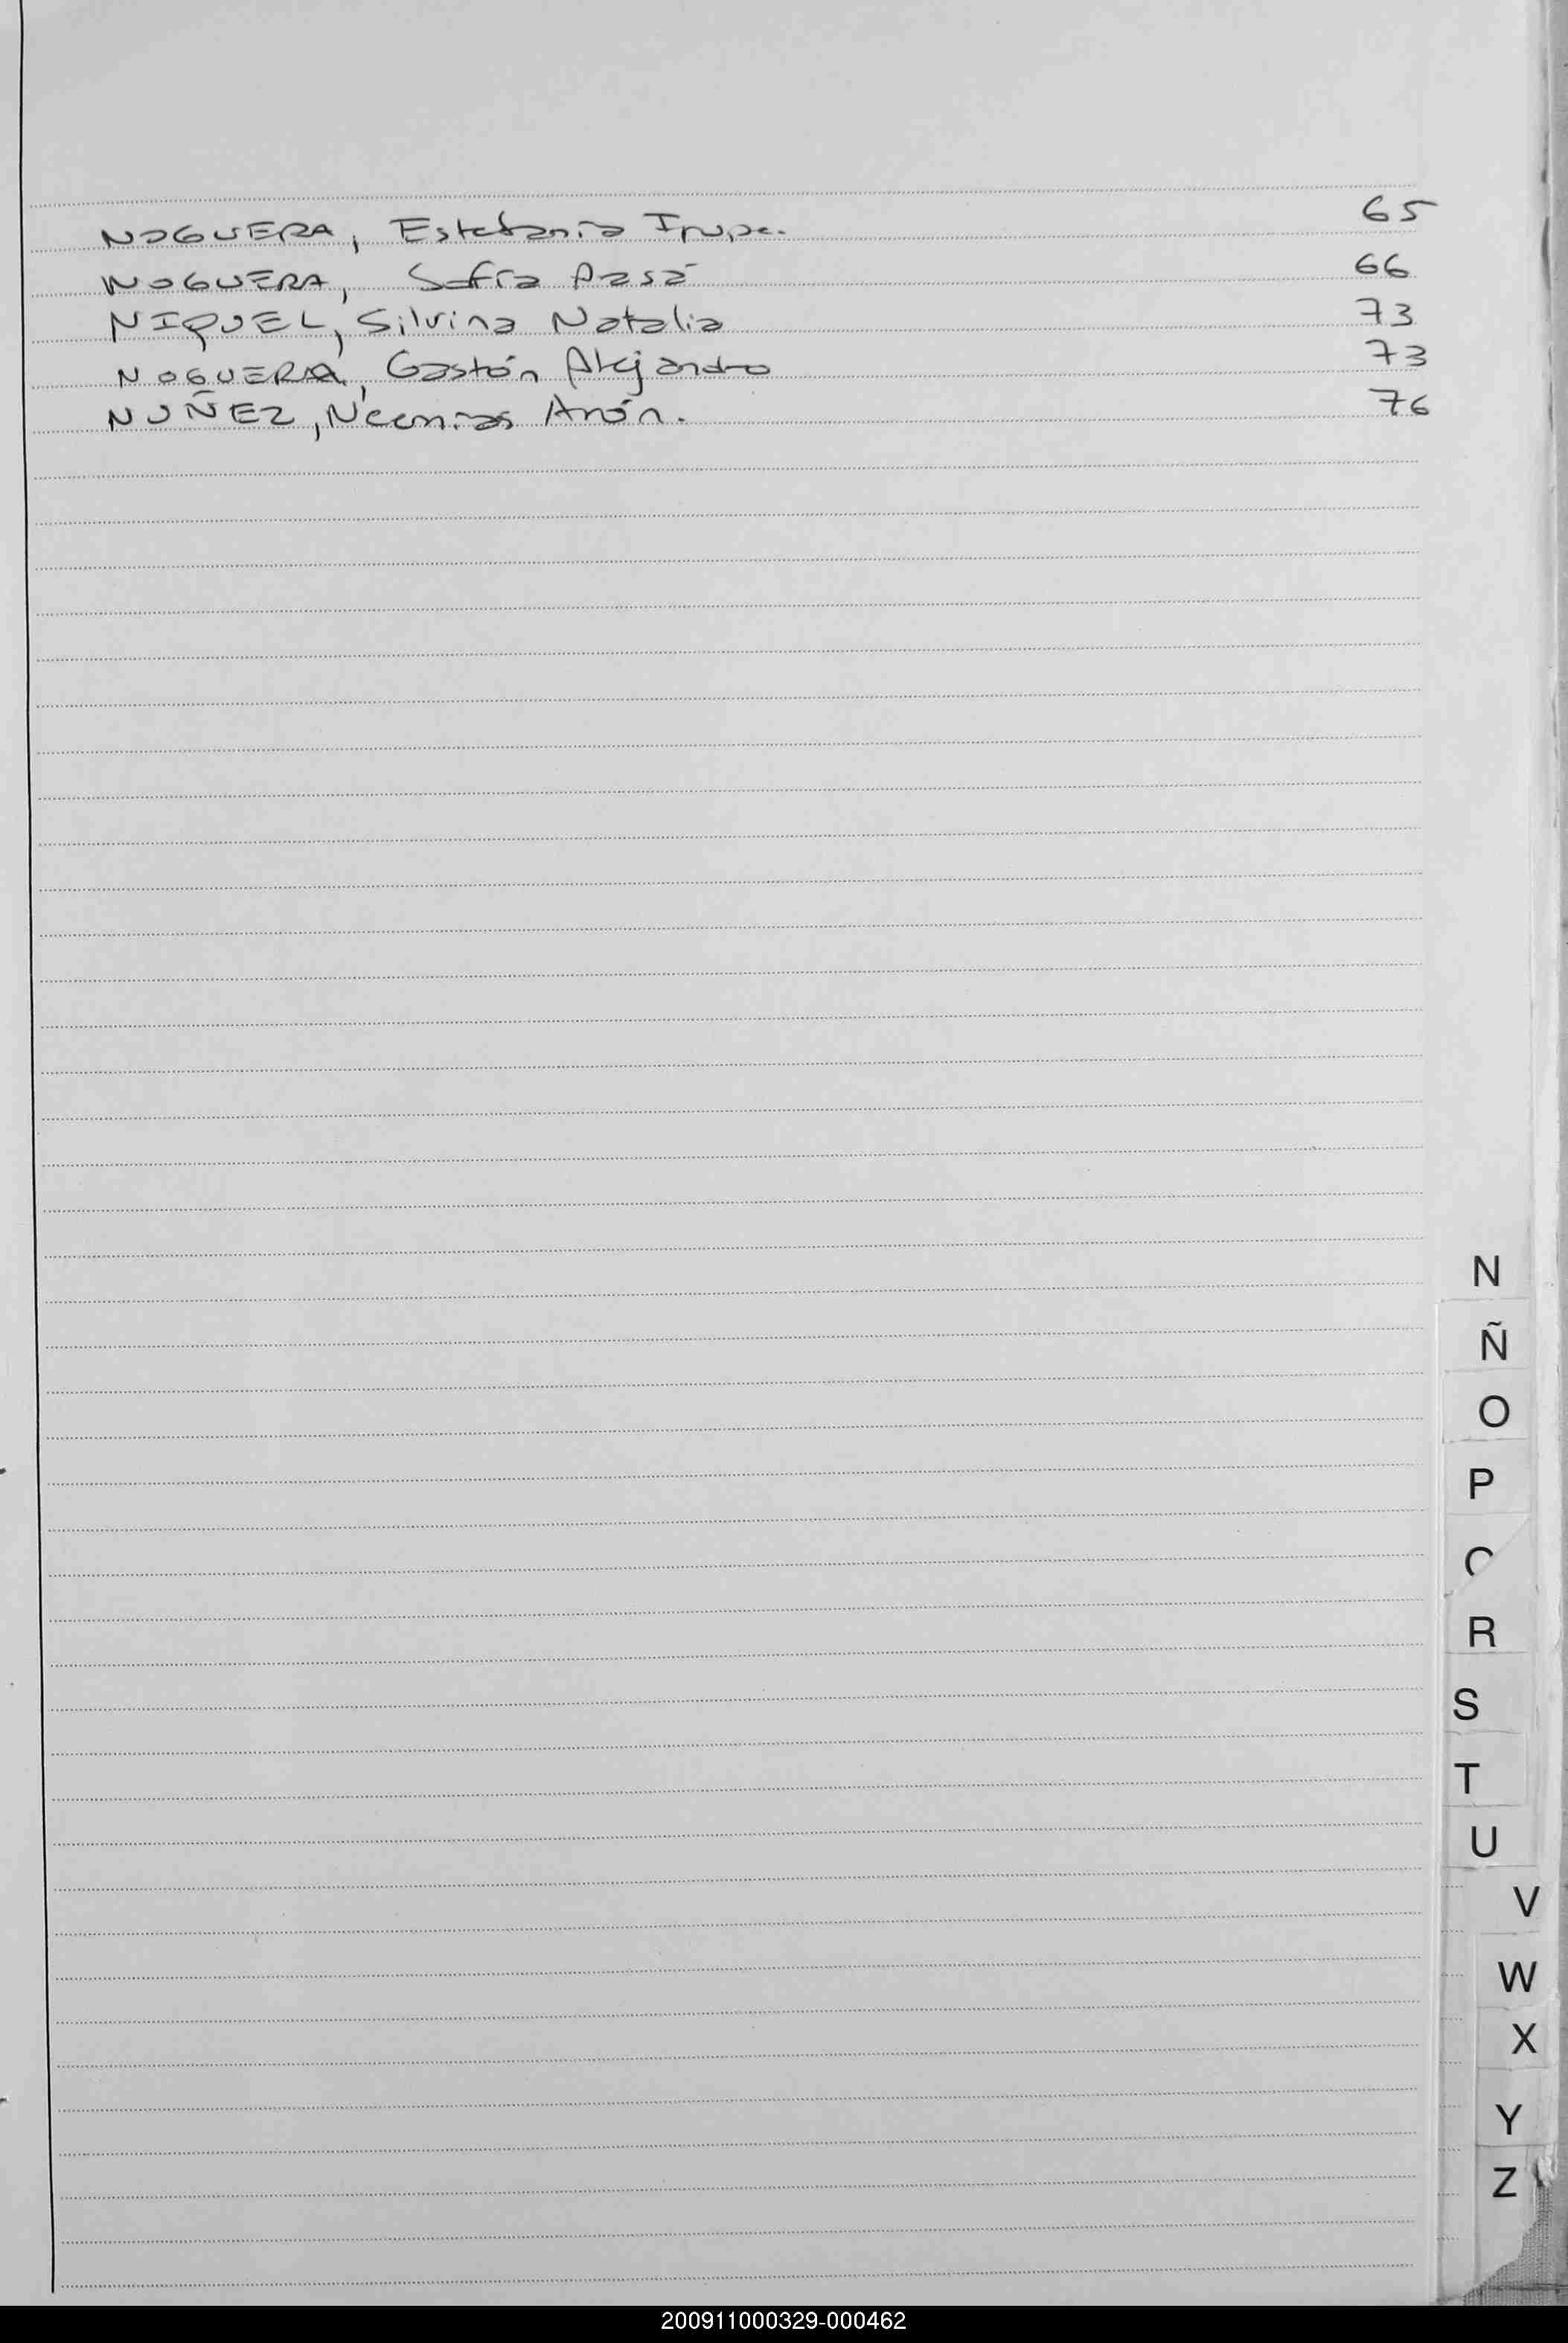 NOGUERA, Estefanía Irupe. 65
NOGUERA, Sofía 66
NIQUEL, Silvina Natalia 73
NOGUERA, Gastón Alejandro 73
NUÑEZ, Neemias 76
N
Ñ
O
P
R
S
T
U
V
W
X
Y
Z
200911000329-000462